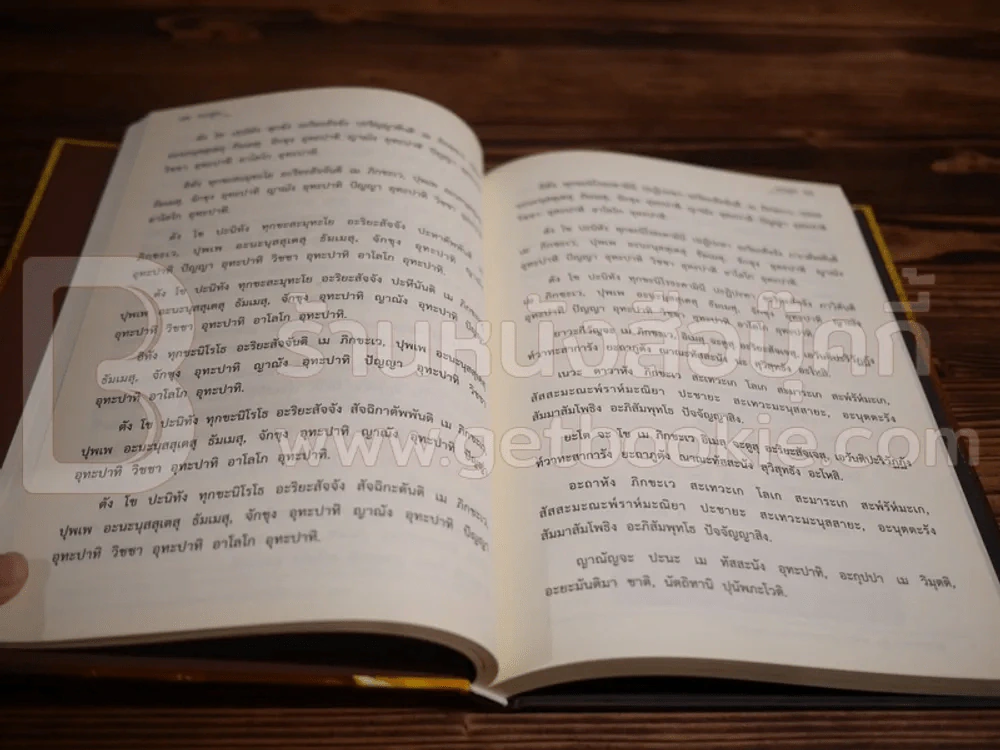 ตัง โข ปะนิทัง ทุกขัง อะริยะสัจจัง
วิชชา อุทะปาทิ อาโลโก อุทะปาทิ.
อิทัง ทุกขะสะมุทะโย อะริยะสัจจันติ เม ภิกขะเว, ปุพเพ
ธัมเมสุ, จักขุง อุทะปาทิ ญาณัง อุทะปาทิ ปัญญา อุทะปาทิ วิชชา อุทะปาทิ
อาโลโก อุทะปาทิ.
ตัง โข ปะนิทัง ทุกขะสะมุทะโย อะริยะสัจจัง ปะหาตัพพันติ
เม ภิกขะเว, ปุพเพ อะนะนุสสุเตสุ ธัมเมสุ, จักขุง อุทะปาทิ ญาณัง
อุทะปาทิ ปัญญา อุทะปาทิ วิชชา อุทะปาทิ อาโลโก อุทะปาทิ.
ตัง โข ปะนิทัง ทุกขะสะมุทะโย อะริยะสัจจัง ปะหีนันติ เม ภิกขะเว,
ปุพเพ อะนะนุสสุเตสุ ธัมเมสุ, จักขุง อุทะปาทิ ญาณัง อุทะปาทิ
อุทะปาทิ วิชชา อุทะปาทิ อาโลโก อุทะปาทิ.
อิทัง ทุกขะนิโรโธ อะริยะสัจจันติ เม ภิกขะเว, ปุพเพ อะนะนุสสุเตสุ
ธัมเมสุ, จักขุง อุทะปาทิ ญาณัง อุทะปาทิ ปัญญา อุทะปาทิ วิชชา
อุทะปาทิ อาโลโก อุทะปาทิ.
ตัง โข ปะนิทัง ทุกขะนิโรโธ อะริยะสัจจัง สัจฉิกาตัพพันติ เม ภิกขะเว,
ปุพเพ อะนะนุสสุเตสุ ธัมเมสุ, จักขุง อุทะปาทิ ญาณัง อุทะปาทิ ปัญญา
อุทะปาทิ วิชชา อุทะปาทิ อาโลโก อุทะปาทิ.
ตัง โข ปะนิทัง ทุกขะนิโรโธ อะริยะสัจจัง สัจฉิกะตันติ เม ภิกขะเว,
ปุพเพ อะนะนุสสุเตสุ ธัมเมสุ, จักขุง อุทะปาทิ ญาณัง อุทะปาทิ ปัญญา
อุทะปาทิ วิชชา อุทะปาทิ อาโลโก อุทะปาทิ.
อิทัง ทุกขะนิโรธะคามินี ปะฏิปะทา
วิชชา อุทะปาทิ อาโลโก อุทะปาทิ.
ตัง โข ปะนิทัง ทุกขะนิโรธะคามินี ปะฏิปะทา อะริยะสัจจัง
เม ภิกขะเว, ปุพเพ อะนะนุสสุเตสุ ธัมเมสุ, จักขุง อุทะปาทิ ญาณัง
อุทะปาทิ ปัญญา อุทะปาทิ วิชชา อุทะปาทิ อาโลโก อุทะปาทิ.
ตัง โข ปะนิทัง ทุกขะนิโรธะคามินี ปะฏิปะทา อะริยะสัจจัง ภาวิตันติ
เม ภิกขะเว, ปุพเพ อะนะนุสสุเตสุ ธัมเมสุ, จักขุง อุทะปาทิ ญาณัง
อุทะปาทิ ปัญญา อุทะปาทิ วิชชา อุทะปาทิ อาโลโก อุทะปาทิ.
ยาวะกีวัญจะ เม ภิกขะเว, อิเมสุ จะตูสุ อะริยะสัจเจสุ, เอวันติปะริวัฏฏัง
ท๎วาทะสาการัง ยะถาภูตัง ญาณะทัสสะนัง นะ สุวิสุทธัง อะโหสิ.
เนวะ ตาวาหัง ภิกขะเว สะเทวะเก โลเก สะมาระเก สะพ๎รัห๎มะเก,
สัสสะมะณะพ๎ราห๎มะณิยา ปะชายะ สะเทวะมะนุสสายะ, อะนุตตะรัง
สัมมาสัมโพธิง อะภิสัมพุทโธ ปัจจัญญาสิง.
ยะโต จะ โข เม ภิกขะเว อิเมสุ จะตูสุ อะริยะสัจเจสุ, เอวันติปะริวัฏฏัง
ท๎วาทะสาการัง ยะถาภูตัง ญาณะทัสสะนัง สุวิสุทธัง อะโหสิ.
อะถาหัง ภิกขะเว สะเทวะเก โลเก สะมาระเก สะพ๎รัห๎มะเก,
สัสสะมะณะพ๎ราห๎มะณิยา ปะชายะ สะเทวะมะนุสสายะ, อะนุตตะรัง
สัมมาสัมโพธิง อะภิสัมพุทโธ ปัจจัญญาสิง.
ญาณัญจะ ปะนะ เม ทัสสะนัง อุทะปาทิ, อะกุปปา เม วิมุตติ,
อะยะมันติมา ชาติ, นัตถิทานิ ปุนัพภะโวติ.
B
ร้านหนังสือบุ๊คกี้
www.getbookie.com